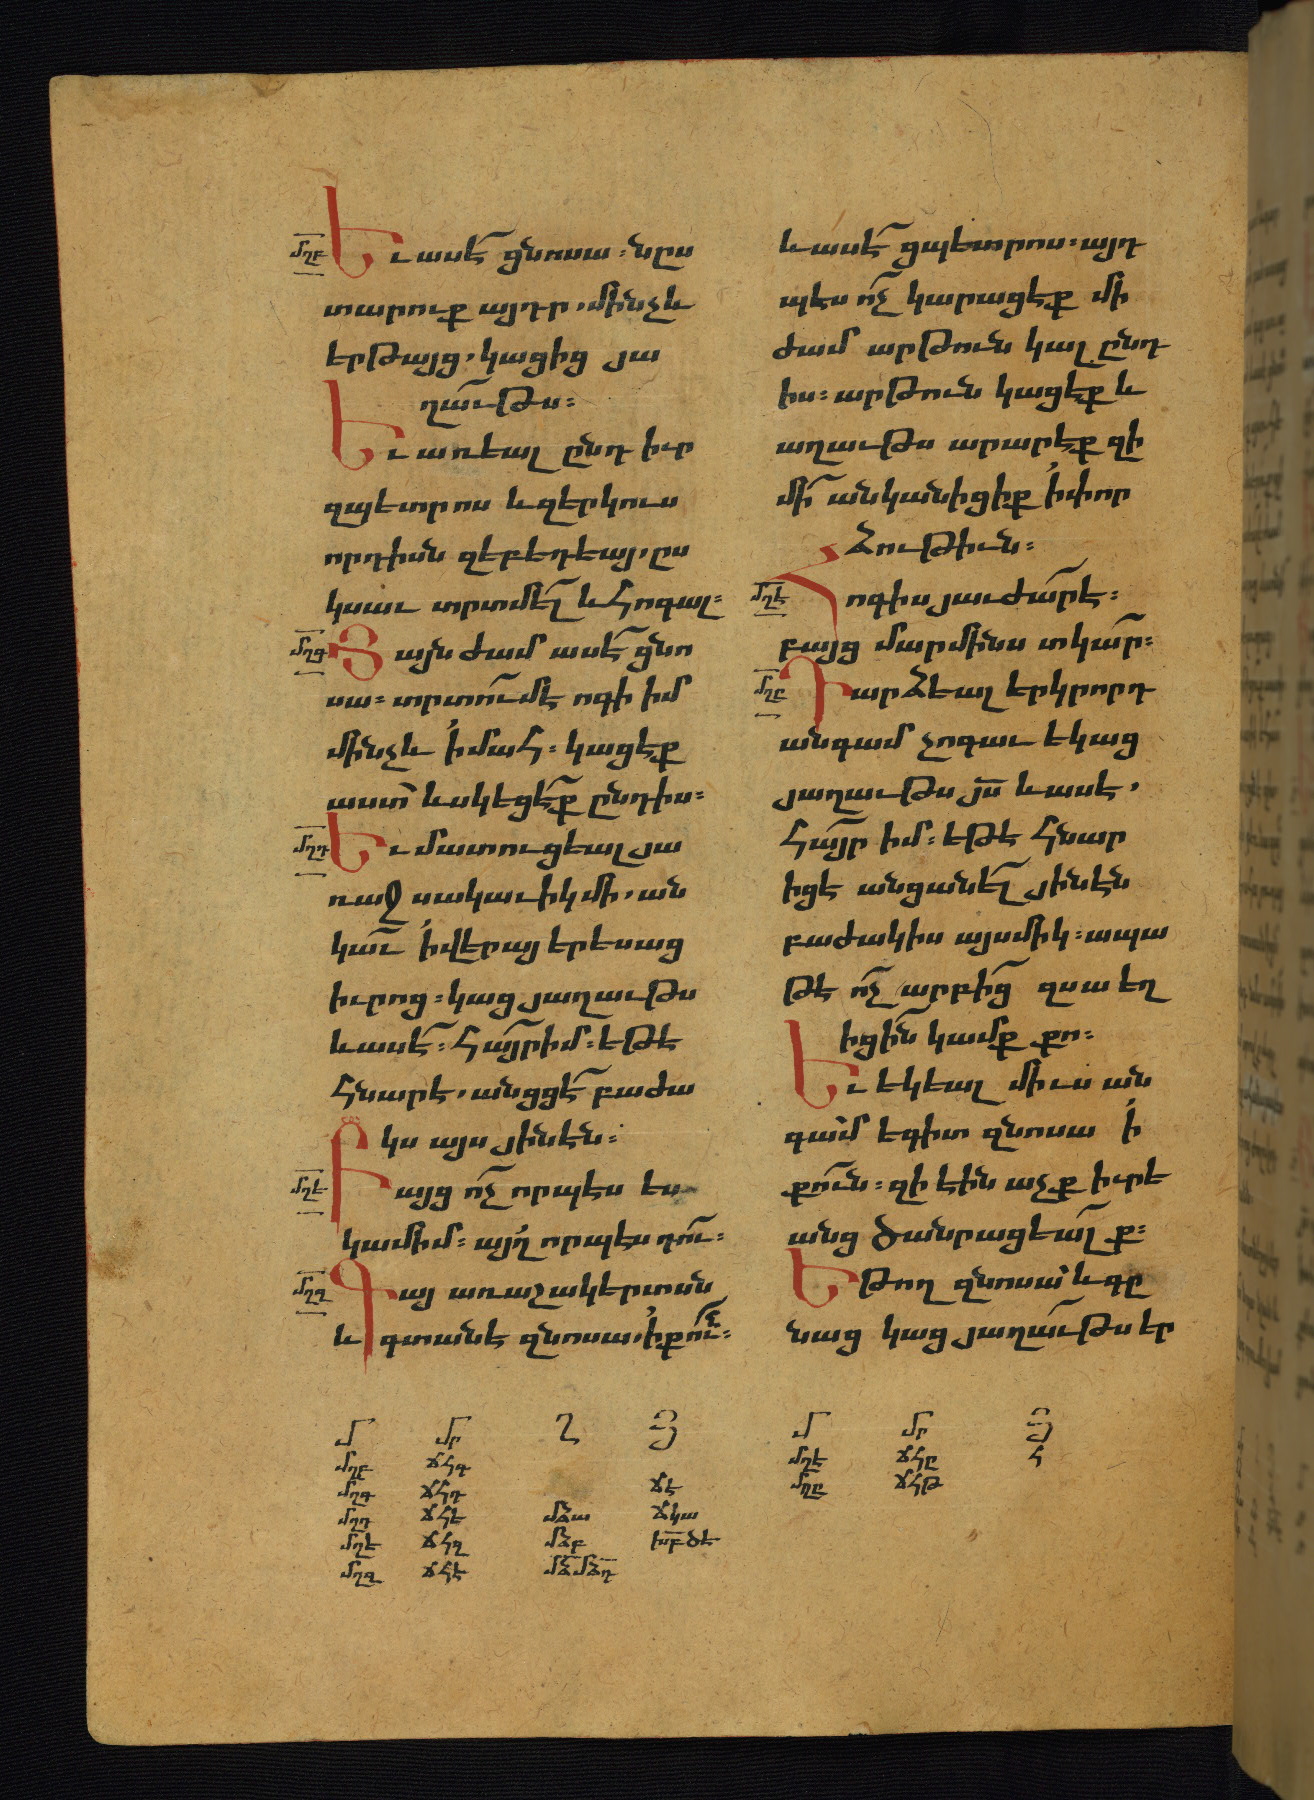 մղբ Եւ ասէ ցնոսա ։ նըս
տարուք այդր , մինչև
երթայց , կացից յա
ղաւթս ։
Եւ առեալ ընդ իւր
զպետրոս և զերկուս
որդիսն զեբեդեայ , ըս
կսաւ տրտմել և հոգալ ։
մղգ Յայն ժամ ասէ ցնո
սա ։ տրտում է ոգի իմ
մինչև ի մահ ։ կացէք
աստ և սկեցէք ընդ իս ։
մղդ Եւ մատուցեալ յա
ռաջ սակաւիկ մի , ան
կաւ ի վերայ երեսաց
իւրոց ։ կաց յաղաւթս
և ասէ ։ հայր իմ ։ եթէ
հնար է , անցցէ բաժա
կս այս յինէն ։
մղե Բայց ոչ որպես ես
կամիմ ։ այղ որպէս դու ։
մղզ Գայ առ աշակերտսն
և գտանէ զնոսա , ի քուն ։
և ասէ ցպետրոս ։ այդ
պէս ոչ կարացէք մի
ժամ արթուն կալ ընդ
իս ։ արթուն կացէք և
աղաւթս արարէք զի
մի անկանիցիք ի փոր
ձութիւն ։
մղէ Հոգիս յաւժար է ։
բայց մարմինս տկար ։
մղը Դարձեալ երկրորդ
անգամ չոգաւ եկաց
յաղաւթս յս և ասէ ,
հայր իմ ։ եթէ հնար
իցէ անցանել յինէն
բաժակիս այսմիկ ։ ապա
թէ ոչ արբից զսա եղ
իցին կամք քո ։
Եւ եկեալ միւս ան
գամ եգիտ զնոսա ի
քուն ։ զի էին աչք իւրե
անց ծանրացեալք ։
Եթող զնոսա և գը
նաց կաց յաղաւթս եր
մ մր ղ յ
մղբ ճհգ
մղգ ճհդ ճէ
մղդ ճհե մձա ճկա
մղե ճհզ մձբ խբ ծէ
մղզ ճհէ մձ մձդ
մ մր յ
մղէ ճհը հ
մղը ճհթ